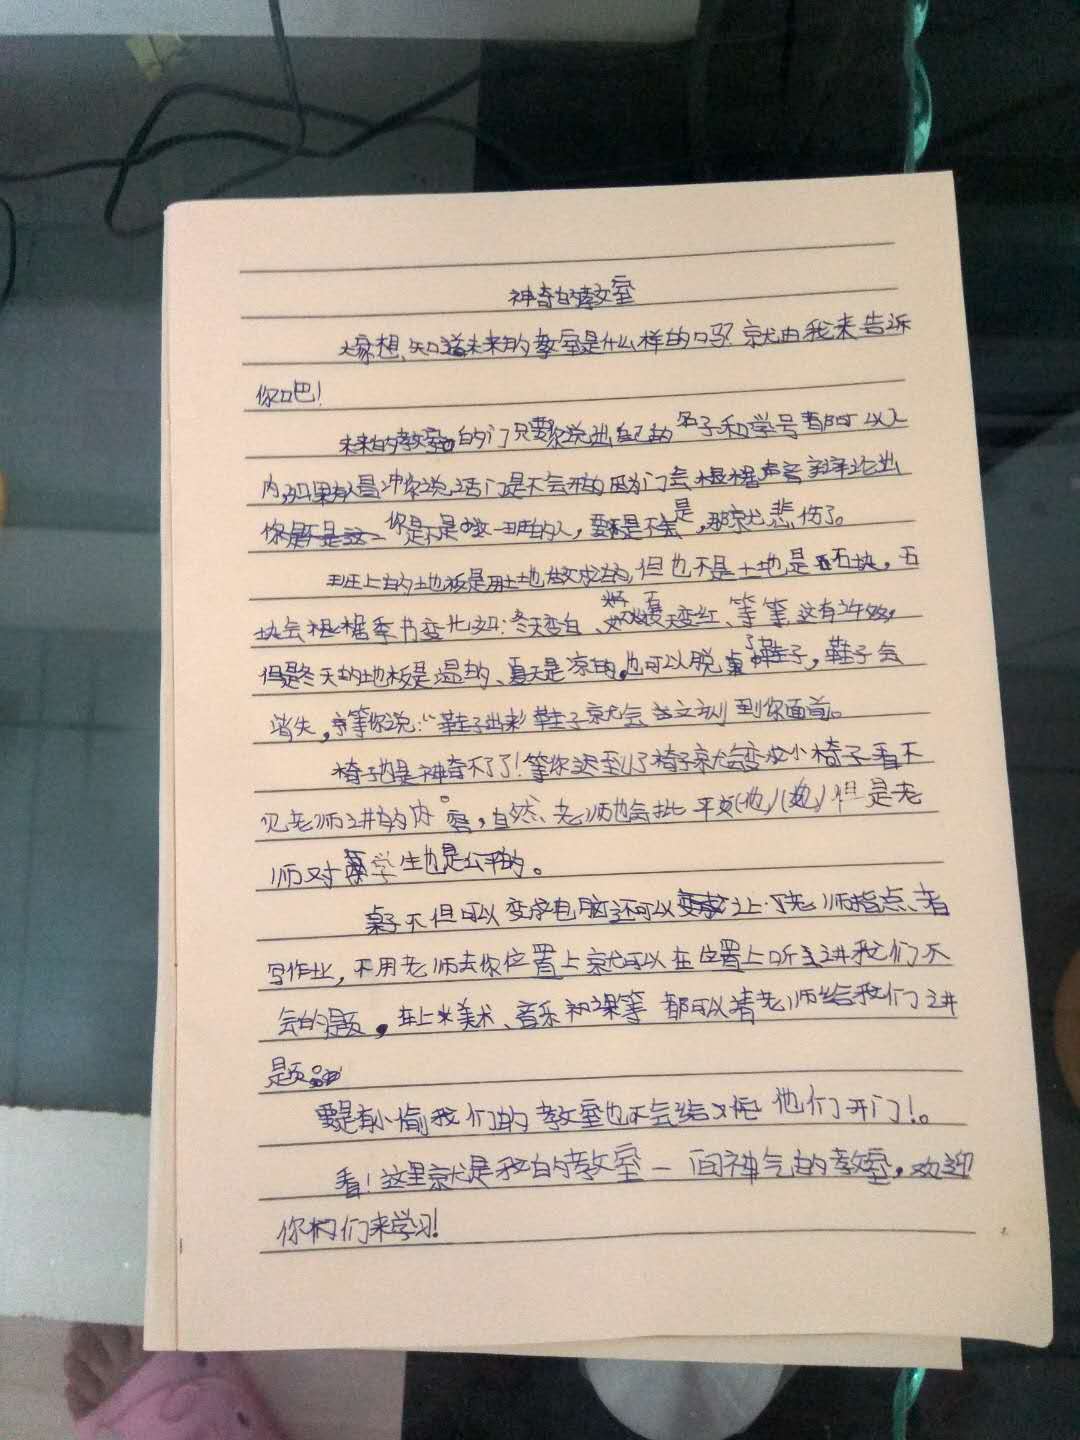 神奇的教室
大家想知道未来的教室是什么样的吗?就由我来告诉
你吧!
未来的教室的门只要你说出自己的名子和学号都可以入
内,如果有人冒冲你说话门是不会开的因为门会根据声音辨论出
你是不是这一班的人,要是不是,那就悲伤了。
班上的地板是用土地做成的,但也不是土地是石块,石
块会根据季书变化如:冬天变白、夏天变红、等等,这有许多,
但是冬天的地板是温的、夏天是凉的,也可以脱了鞋子,鞋子会
消失,等你说:“鞋子出来”鞋子就会立刻到你面前。
椅子也是神奇不了了!等你迟到了椅子就会变成小椅子看不
见老师讲的内容,自然、老师也会批平(他)(她)但是老
师对学生也是公平的。
桌子不但可以变成电脑还可以让老师指点着
写作业,不用老师去你位置上就可以在位置上听讲我们不
会的题。在上美术、音乐课等都可以请老师给我们讲
题。
要是有小偷我们的教室也不会给他们开门!。
看!这里就是我的教室一间神气的教室,欢迎
你们来学习!